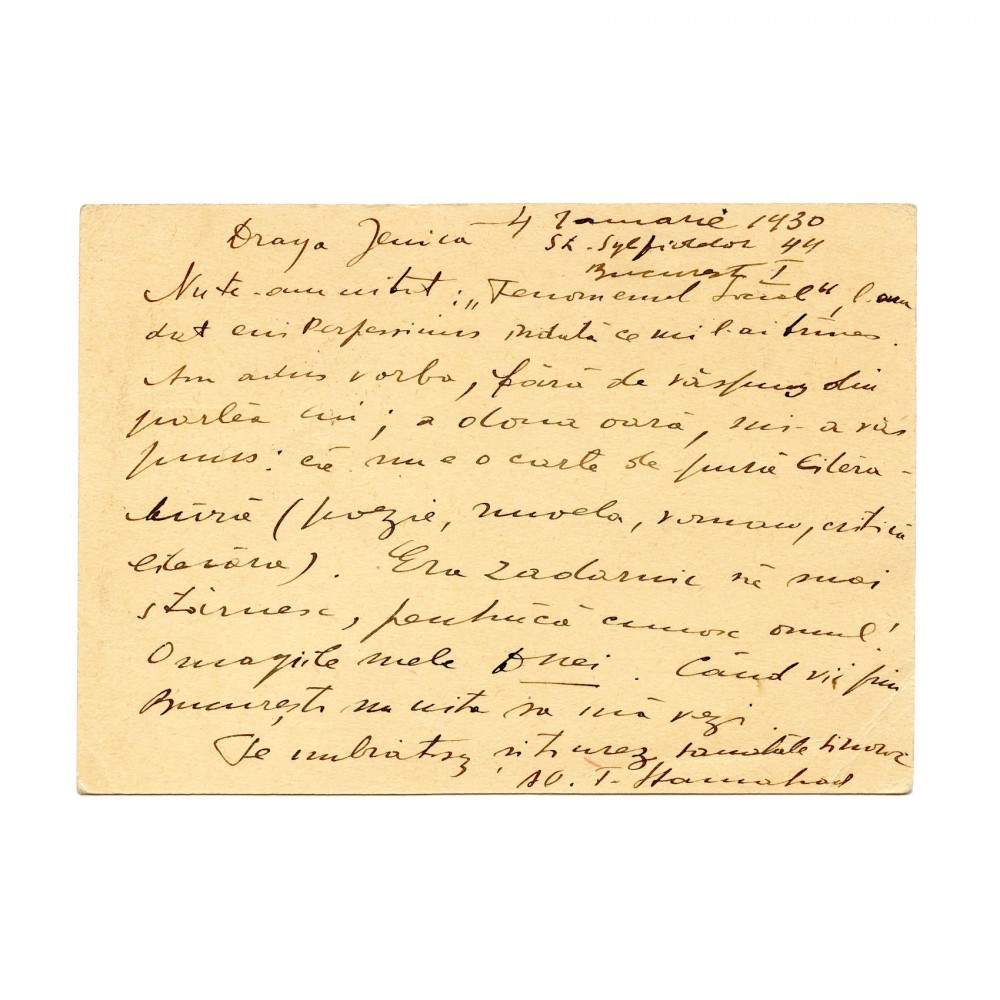 Draga Jenică - 4 Ianuarie 1930
St. Sylfidelor 44
București I
Nu te-am uitat: „Fenomenul Social", l-am
dat lui Perpessicius îndată ce mi l-ai trimes.
Am adus vorba, fără de răspuns din
partea lui; a doua oară, mi-a răs
puns: că nu e o carte de pură litera-
tură (poezie, nuvela, roman, critică
literara). Era zadarnic să mai
stărnesc, pentrucă cunosc omul!
Omagiile mele Dnei. Când vii prin
București nu uita sa mă vezi.
Te imbratisez și ti urez sanatate
I.